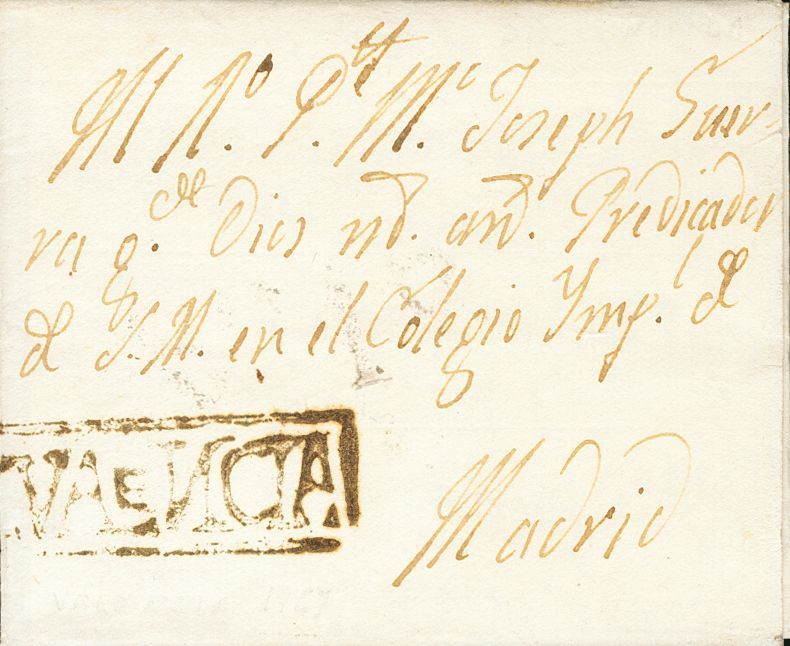 Al R.º P.e M.º Joseph Guer-
ra g.de Dios m.s an.s Predicador
de S. M. en el Colegio Imp.l de
VALENCIA
Madrid